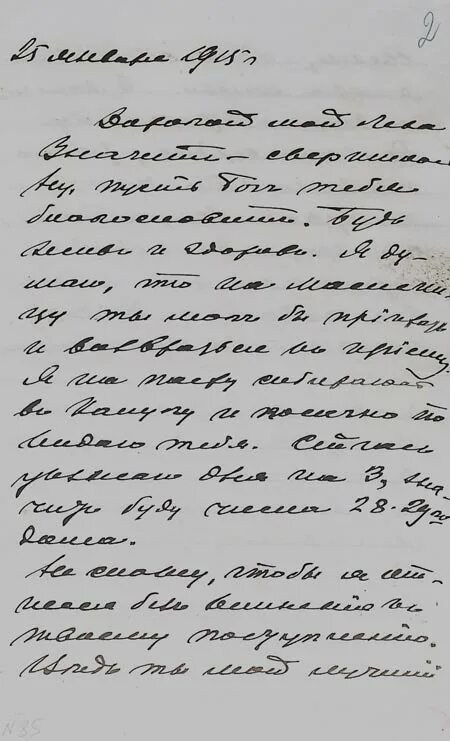 2
25 января 1915 г
Дорогой мой Лева
Значит – свершилось
Ну, пусть Бог тебя
благословит. Будь
живъ и здоровъ. Я ду-
маю, что на маслени-
цу ты могъ бы пріѣхать
и возвраться къ пріему.
Я на пасху собираюсь
въ Калугу и конечно по
видаю тебя. Сейчасъ
уѣзжаю дня на 3, зна-
читъ буду числа 28-29го
дома.
Не скажу, чтобы я от-
несся безъ волненія къ
твоему поступленію.
Вѣдь ты мой лучшій
N 35